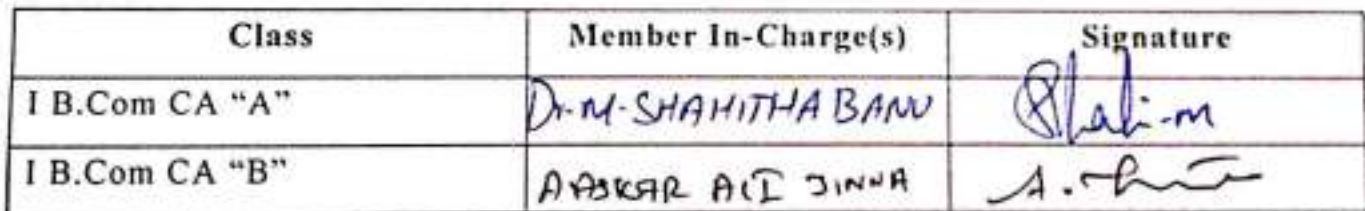 Class Member In-Charge(s) Signature
I B.Com CA “A” Dr.M.SHAHITHA BANU
I B.Com CA “B” ALI JINNA